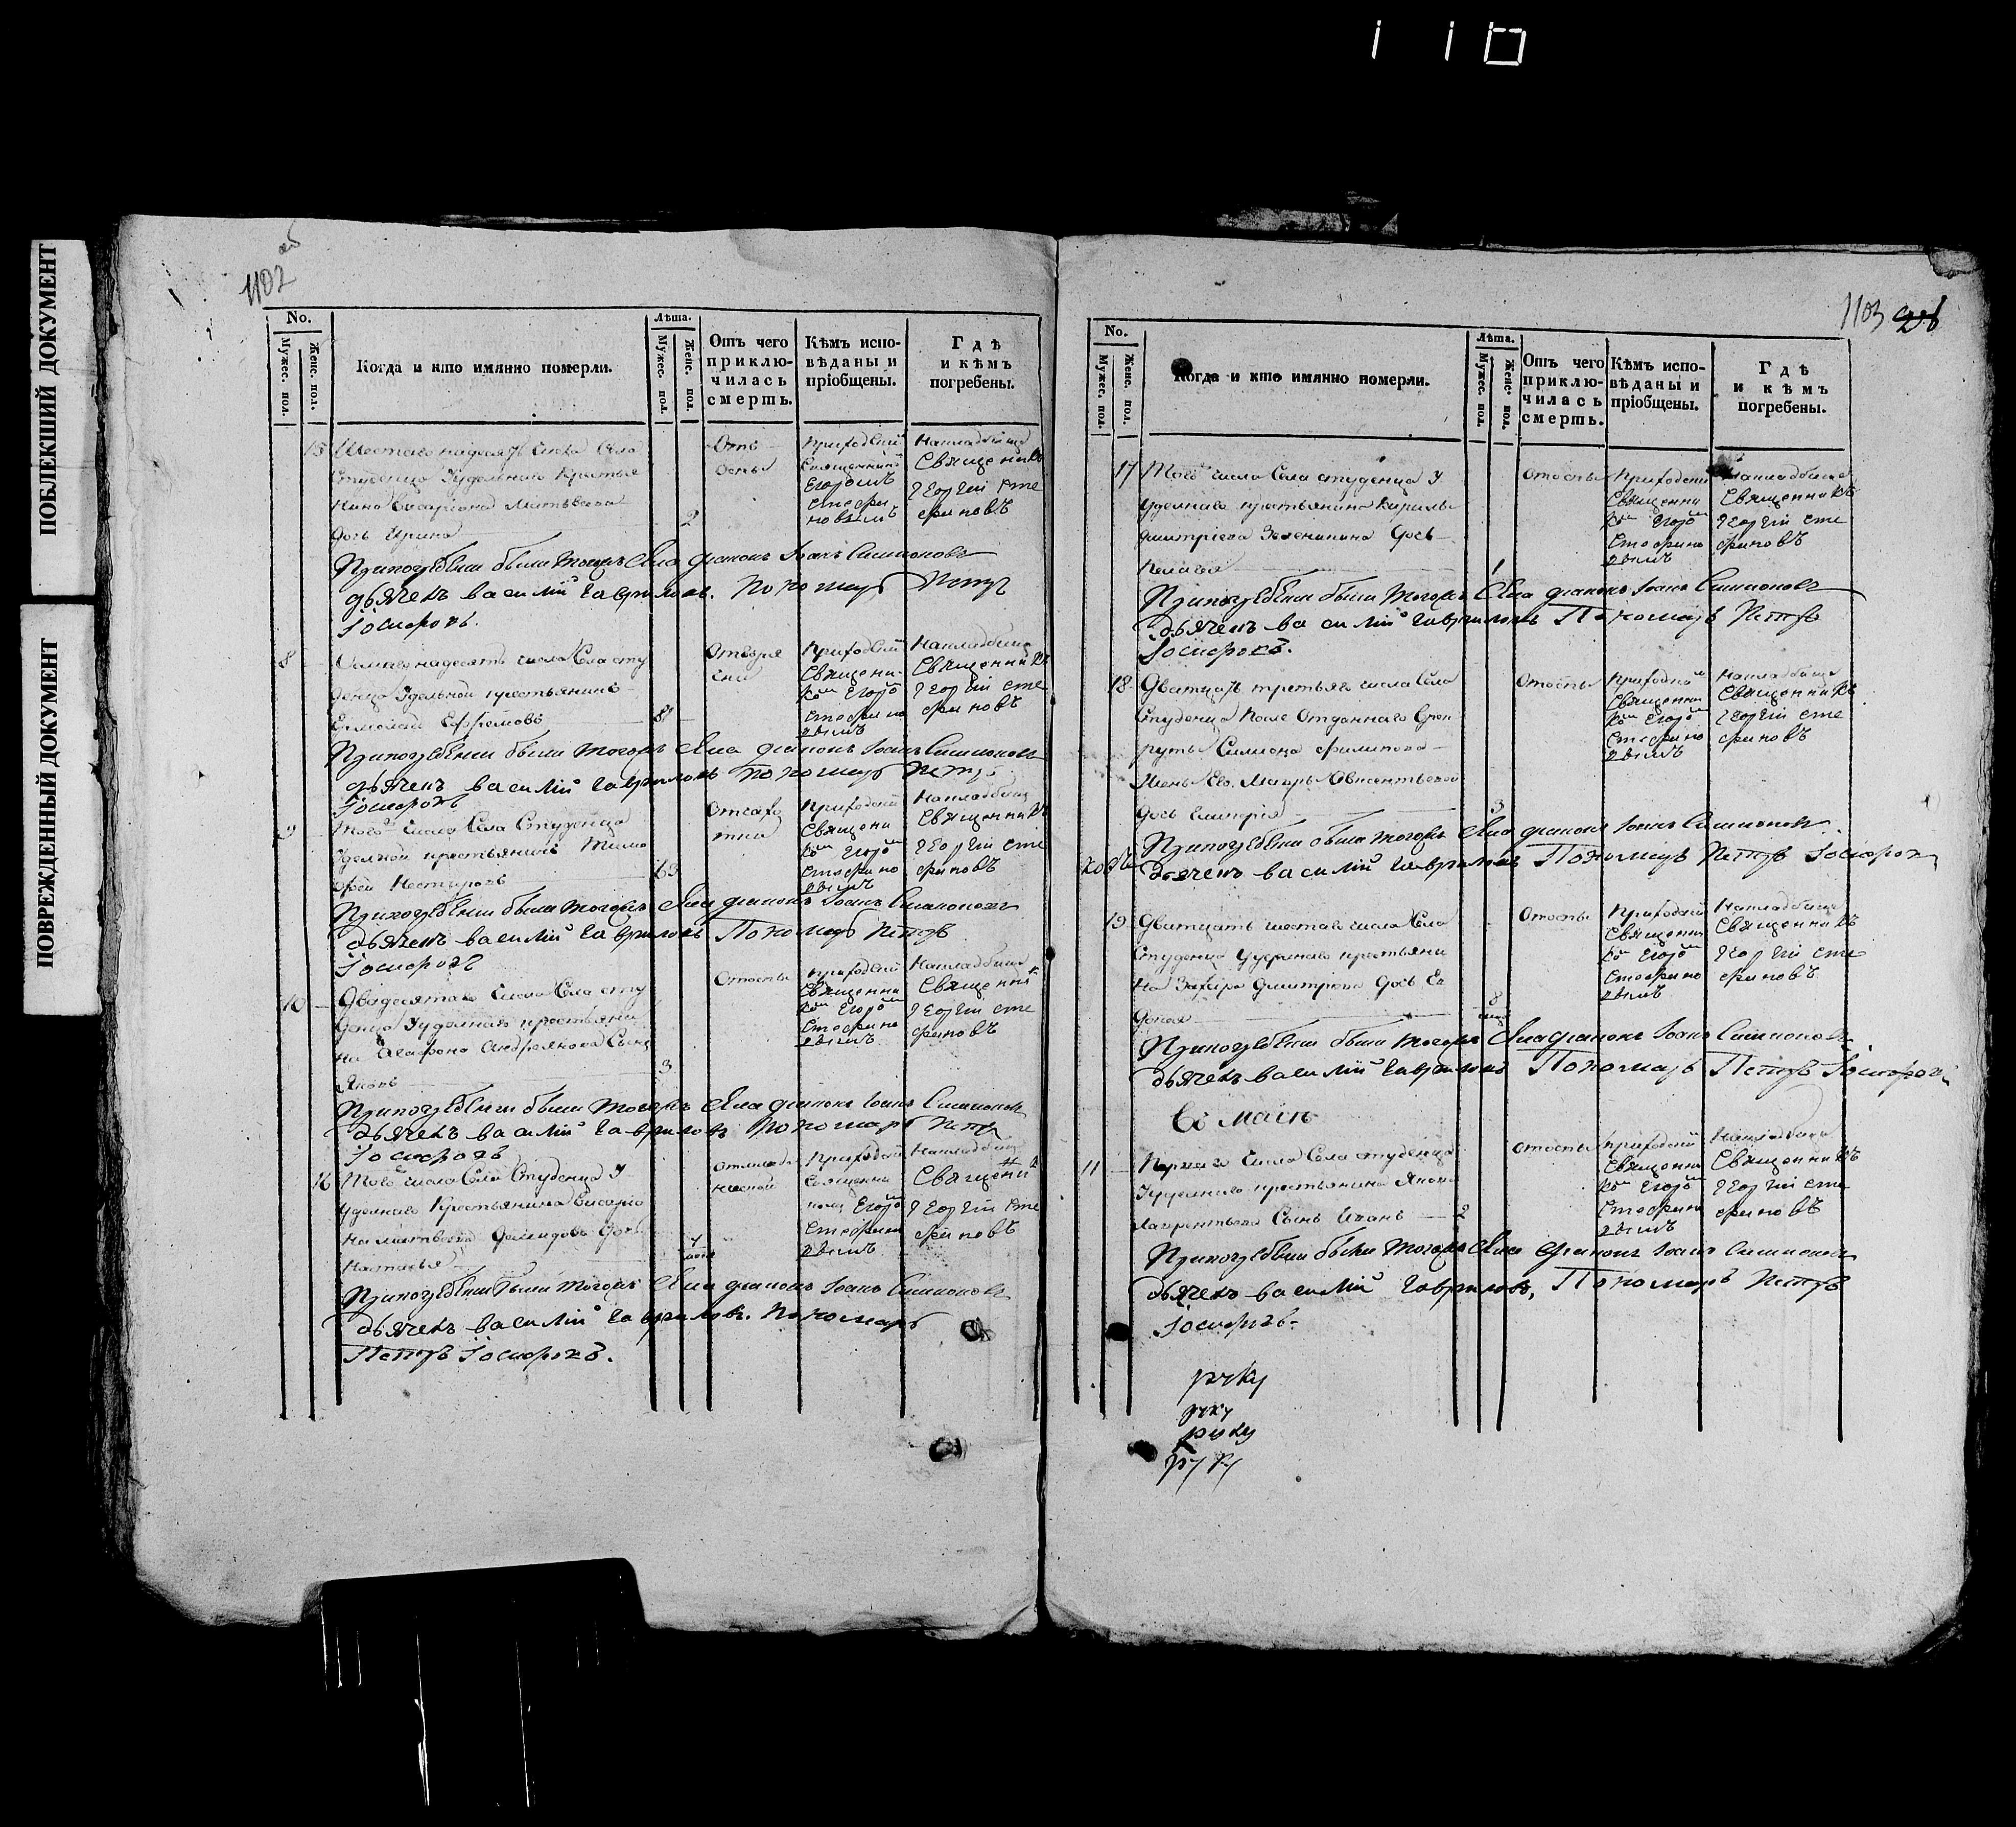 ПОБЛЕКШИЙ ДОКУМЕНТ
ПОВРЕЖДЕННЫЙ ДОКУМЕНТ
1102
No.
Мужес. пол.
Женс. пол.
Когда и кто имянно померли.
Лѣта.
Мужес. пол.
Женс. пол.
Отъ чего приклю-
чилась смерть.
Кѣмъ испо-
вѣданы и
пріобщены.
Гдѣ
и кѣмъ
погребены.
15 Шестаго надесять числа Села
Студенца Удельнаго Крестья
нина Висариона Матвеева
дочь Ирина 2
Отъ
оспы
Приходский
Священник
Егоромъ
Стефи
новымъ
На кладбище
Священникъ
Георгій Сте
финовъ
При погребении были тогожъ Села диаконъ Іоанъ Симионовъ
дьячекъ Василий Гавриловъ. Пономарь Петръ
Іосифовъ.
8 Осмаго надесять числа Села Сту
денца Удельной крестьянинъ
Ермолай Ефремовъ
Приходской
Священни
комъ Егоро
Стефино
вымъ
На кладбище
Священникъ
Георгій Сте
финовъ
При погребении были тогожъ Села диаконъ Іоанъ Симионовъ
дьячекъ Василий Гавриловъ Пономарь Петръ
Іосифовъ
9 Тогожъ числа Села Студенца
Удельной крестьянинъ Тимо
фей Нестеровъ
От старо
сти
Приходской
Священни
комъ Егоро
Стефино
вымъ
На кладбище
Священникъ
Георгій Сте
финовъ
При погребении были тогожъ Села диаконъ Іоанъ Симионовъ
дьячекъ Василий Гавриловъ Пономарь Петръ
Іосифовъ
10 Двадесятаго числа Села Сту
денца Удельнаго крестьяни
на Агафона Андреянова Сынъ
Яковъ 3
От оспы
Приходской
Священни
комъ Егоро
Стефино
вымъ
На кладбище
Священникъ
Георгій Сте
финовъ
При погребении были тогожъ Села диаконъ Іоанъ Симионовъ
дьячекъ Василий Гавриловъ Пономарь Петръ
Іосифовъ
16 Тогожъ числа Села Студенца У
дельнаго Крестьянина Висарио
на Матвеева Демидова дочь
Настасья
Приходской
Священни
комъ Егоро
Стефино
вымъ
На кладбище
Священникъ
Георгій Сте
финовъ
При погребении были тогожъ Села диаконъ Іоанъ Симионовъ
дьячекъ Василий Гавриловъ. Пономарь
Петръ Іосифовъ.
1103
No.
Мужес. пол.
Женс. пол.
Когда и кто имянно померли.
Лѣта.
Мужес. пол.
Женс. пол.
Отъ чего приклю-
чилась смерть.
Кѣмъ испо-
вѣданы и
пріобщены.
Гдѣ
и кѣмъ
погребены.
17 Тогожъ числа Села Студенца У
дельнаго крестьянина Кирилы
Дмитриева дочь
Пелагея 1
От оспы
Приходской
Священни
комъ Егоро
Стефино
вымъ
На кладбище
Священникъ
Георгій Сте
финовъ
При погребении были тогожъ Села диаконъ Іоанъ Симионовъ
дьячекъ Василий Гавриловъ Пономарь Петръ
Іосифовъ.
18 Дватцать третьяго числа Села
Студенца После Отданнаго в рек
руты Симиона Филипова
Жены Его Марьи
дочь 3
От оспы
Приходской
Священни
комъ Егоро
Стефино
вымъ
На кладбище
Священникъ
Георгій Сте
финовъ
При погребении были тогожъ Села диаконъ Іоанъ Симионовъ
дьячекъ Василий Гавриловъ Пономарь Петръ Іосифовъ
19 Дватцать шестаго числа Села
Студенца Удельнаго крестьяни
на Дмитриева дочь Ев
докея 8
От оспы
Приходской
Священни
комъ Егоро
Стефино
вымъ
На кладбище
Священникъ
Георгій Сте
финовъ
При погребении были тогожъ Села диаконъ Іоанъ Симионовъ
дьячекъ Василий Гавриловъ Пономарь Петръ Іосифовъ
Въ Маие
11 Перваго числа Села Студенца
Удельнаго крестьянина Якова
Лаврентьева Сынъ Иванъ 2
От оспы
Приходской
Священни
комъ Егоро
Стефино
вымъ
На кладбище
Священникъ
Георгій Сте
финовъ
При погребении были тогожъ Села диаконъ Іоанъ Симионовъ
дьячекъ Василий Гавриловъ, Пономарь Петръ
Іосифовъ.
руку
руку
руку
руку